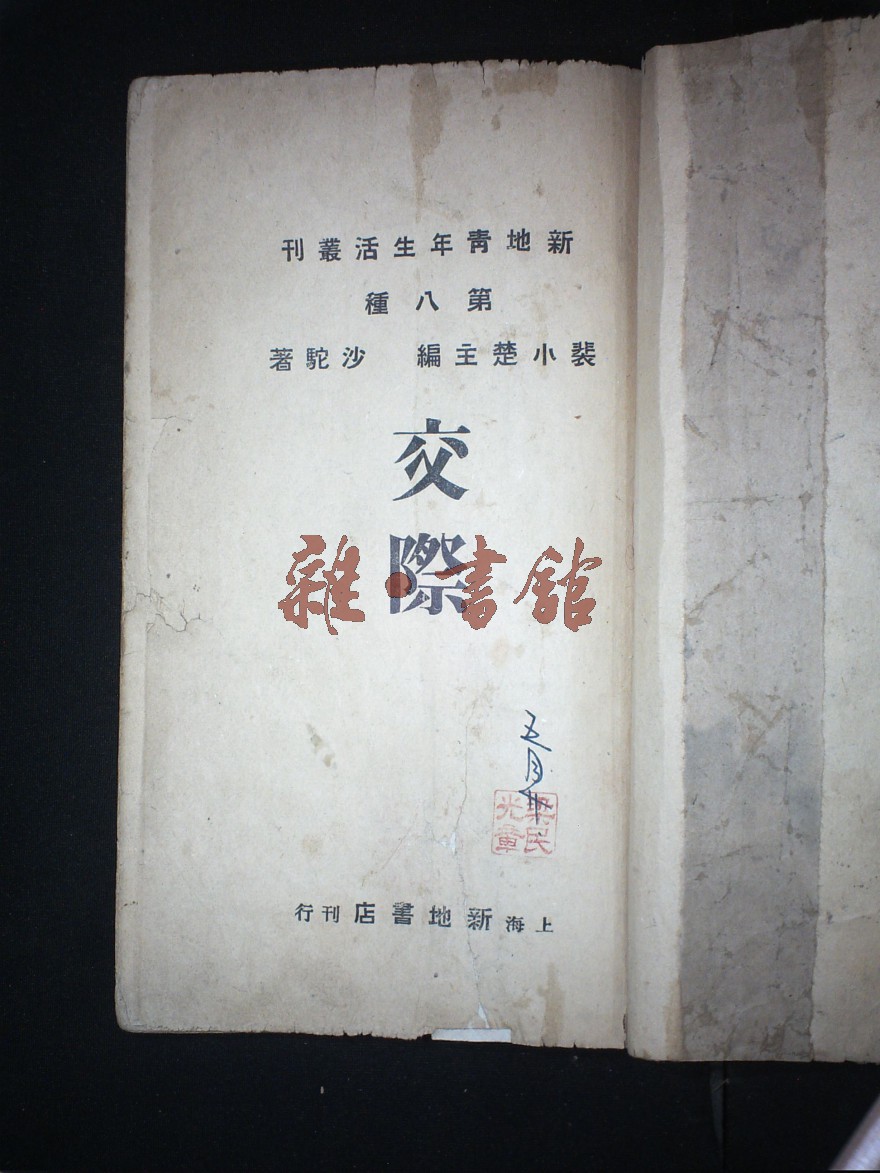 新地青年生活叢刊
第八種
裴小楚主編 沙駝著
交際
雜·書館
五月
梁民光章
上海新地書店刊行